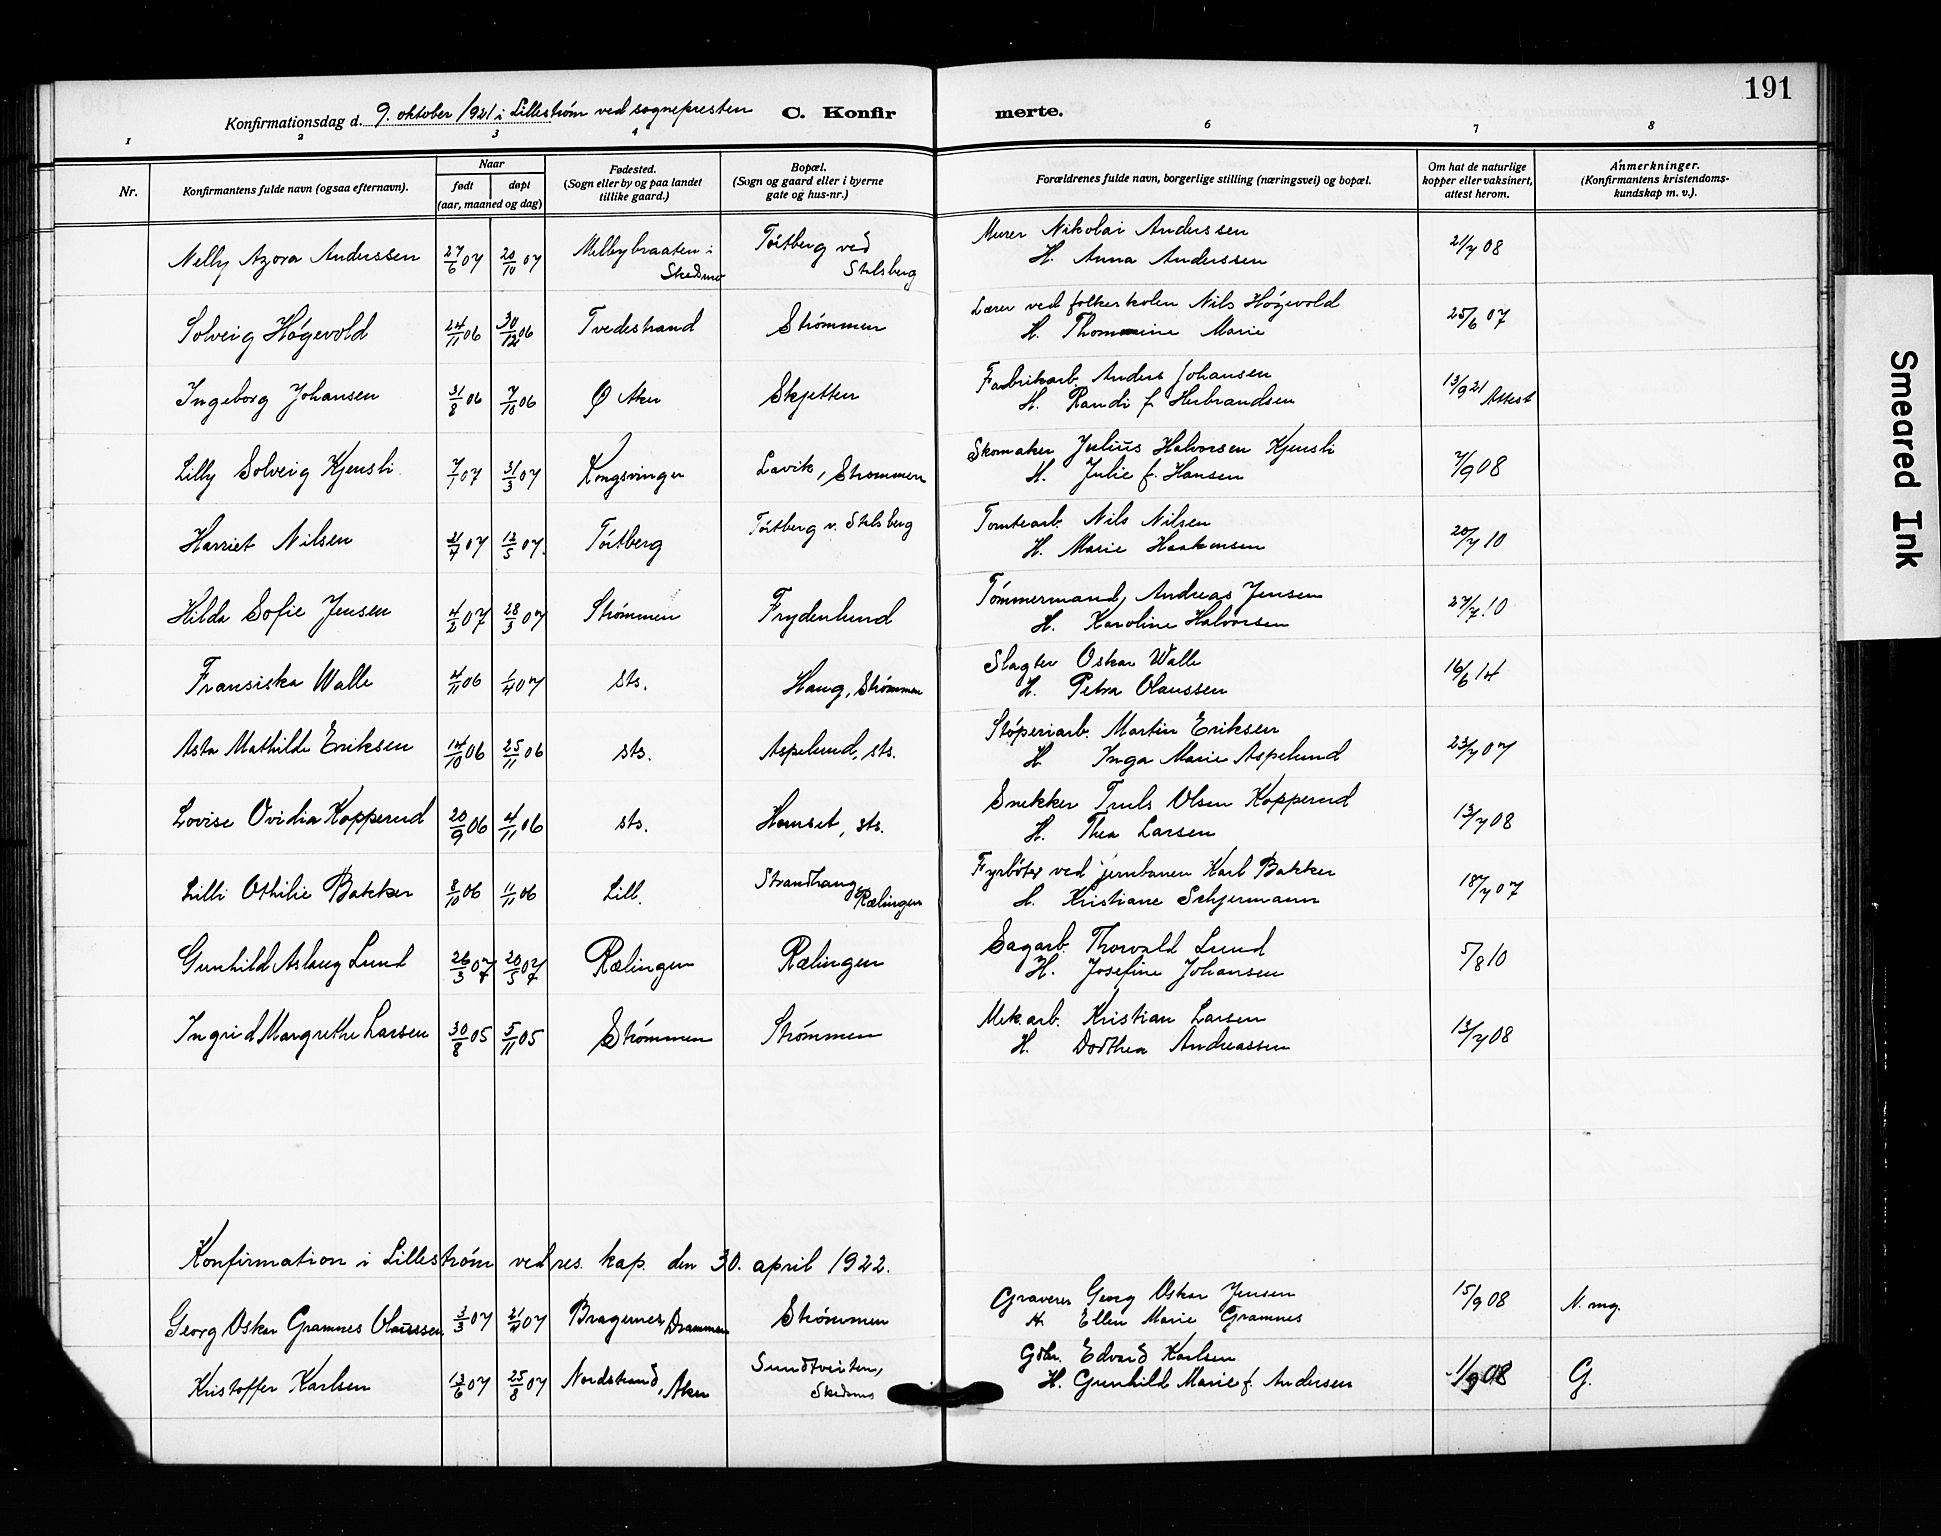 191
Konfirmationsdag d. 9. oktober 1921 i Lillestrøm ved sognepresten C. Konfirmerte.
1 2 3 4 6 7 8
Nr. Konfirmantens fulde navn (ogsaa efternavn). Naar født døpt (aar, maaned og dag) Fødested. (Sogn eller by og paa landet tillike gaard.) Bopæl. (Sogn og gaard eller i byerne gate og hus-nr.) Forældrenes fulde navn, borgerlige stilling (næringsvei) og bopæl. Om hat de naturlige kopper eller vaksinert, attest herom. Anmerkninger. (Konfirmantens kristendoms-kundskap m. v.).
Nelly Azora Anderssen 27/6 07 20/10 07 Melbybraaten i Skedsmo Tóitberg ved Stalsberg Murer Nikolai Anderssen
H. Anna Anderssen 21/7 08
Solveig Høgevold 24/11 06 30/12 06 Tvedestrand Strømmen Lærer ved folkeskolen Nils Høgevold
H. Thommine Marie 25/6 07
Ingeborg Johansen 31/8 06 7/10 06 Ø Aker Skjetten Fabrikarb. Anders Johansen
H. Randi f. Herbrandsen 13/9 21 Attest
Lilly Solveig Kjensli 7/1 07 31/3 07 Kongsvinger Lavik, Strømmen Skomaker Julius Halvorsen Kjensli
H. Julie f. Hansen 7/9 08
Harriet Nilsen 21/4 07 12/5 07. Tóitberg Tóitberg v. Stalsberg Tomtearb. Nils Nilsen
H. Marie Haakensen 20/7 10
Hilda Sofie Jensen 4/2 07 28/3 07 Strømmen Frydenlund Tømmermand, Andreas Jensen
H. Karoline Halvorsen 27/7 10
Fransiska Walle 4/11 06 1/4 07 sts. Haug, Strømmen Slagter Oskar Walle
H. Petra Olaussen 16/6 14
Asta Mathilde Eriksen 14/10 06 25/11 06 sts. Aspelund, sts. Støperiarb. Martin Eriksen
H Inga Marie Aspelund 23/7 07
Lovise Ovidia Kopperud 20/9 06 4/11 06 sts. sts. Snekker Truls Olsen Kopperud
H. Thea Larsen 13/7 08
Lilli Othilie Bakker 8/10 06 11/11 06 Lill. Strandhaug, Rælingen Fyrbøter ved jernbanen Karl Bakker
H. Kristiane Schjermann 18/7 07
Gunhild Aslaug Lund 26/3 07 20/5 07 Rælingen Rælingen Sagarb. Thorvald Lund
H. Josefine Johansen 5/8 10
Ingrid Margrethe Larsen 30/8 05 5/11 05 Strømmen Strømmen Mek.arb. Kristian Larsen
H. Dorthea Andreassen 13/7 08
Konfirmation i Lillestrøm ved res. kap. den 30. april 1922.
Georg Oskar Gramnes Olaussen 3/3 07 21/4 07 Bragernes, Drammen Strømmen Graverer Georg Oskar Jensen
H. Ellen Marie Gramnes 15/9 08 N. mg.
Kristoffer Karlsen 13/6 07 25/8 07 Nordstrand, Aker Skedsmo Gdbr. Edvard Karlsen
H. Gunhild Marie f. Andersen 11/9 08 G.
Smeared Ink